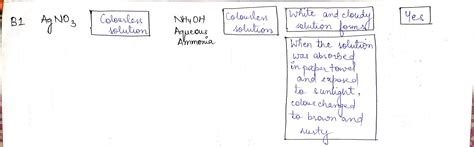 B1
AgNO3
Colourless
solution
NH4OH
Aqueous
Ammonia
Colourless
solution
White and cloudy
solution forms
When the solution
was absorbed
in paper towel
and exposed
to sunlight,
colour changed
to brown and
rusty
Yes